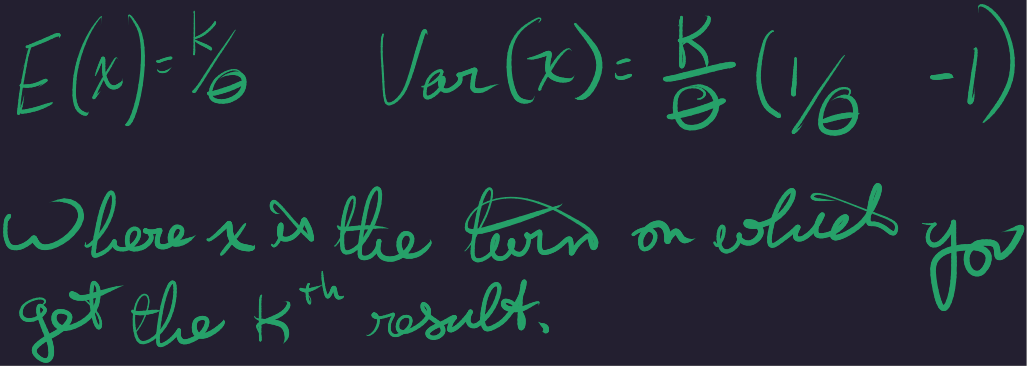 E(x)=K/θ Var(x)=K/θ(1/θ -1)
Where x is the turn on which you
get the Kth result.